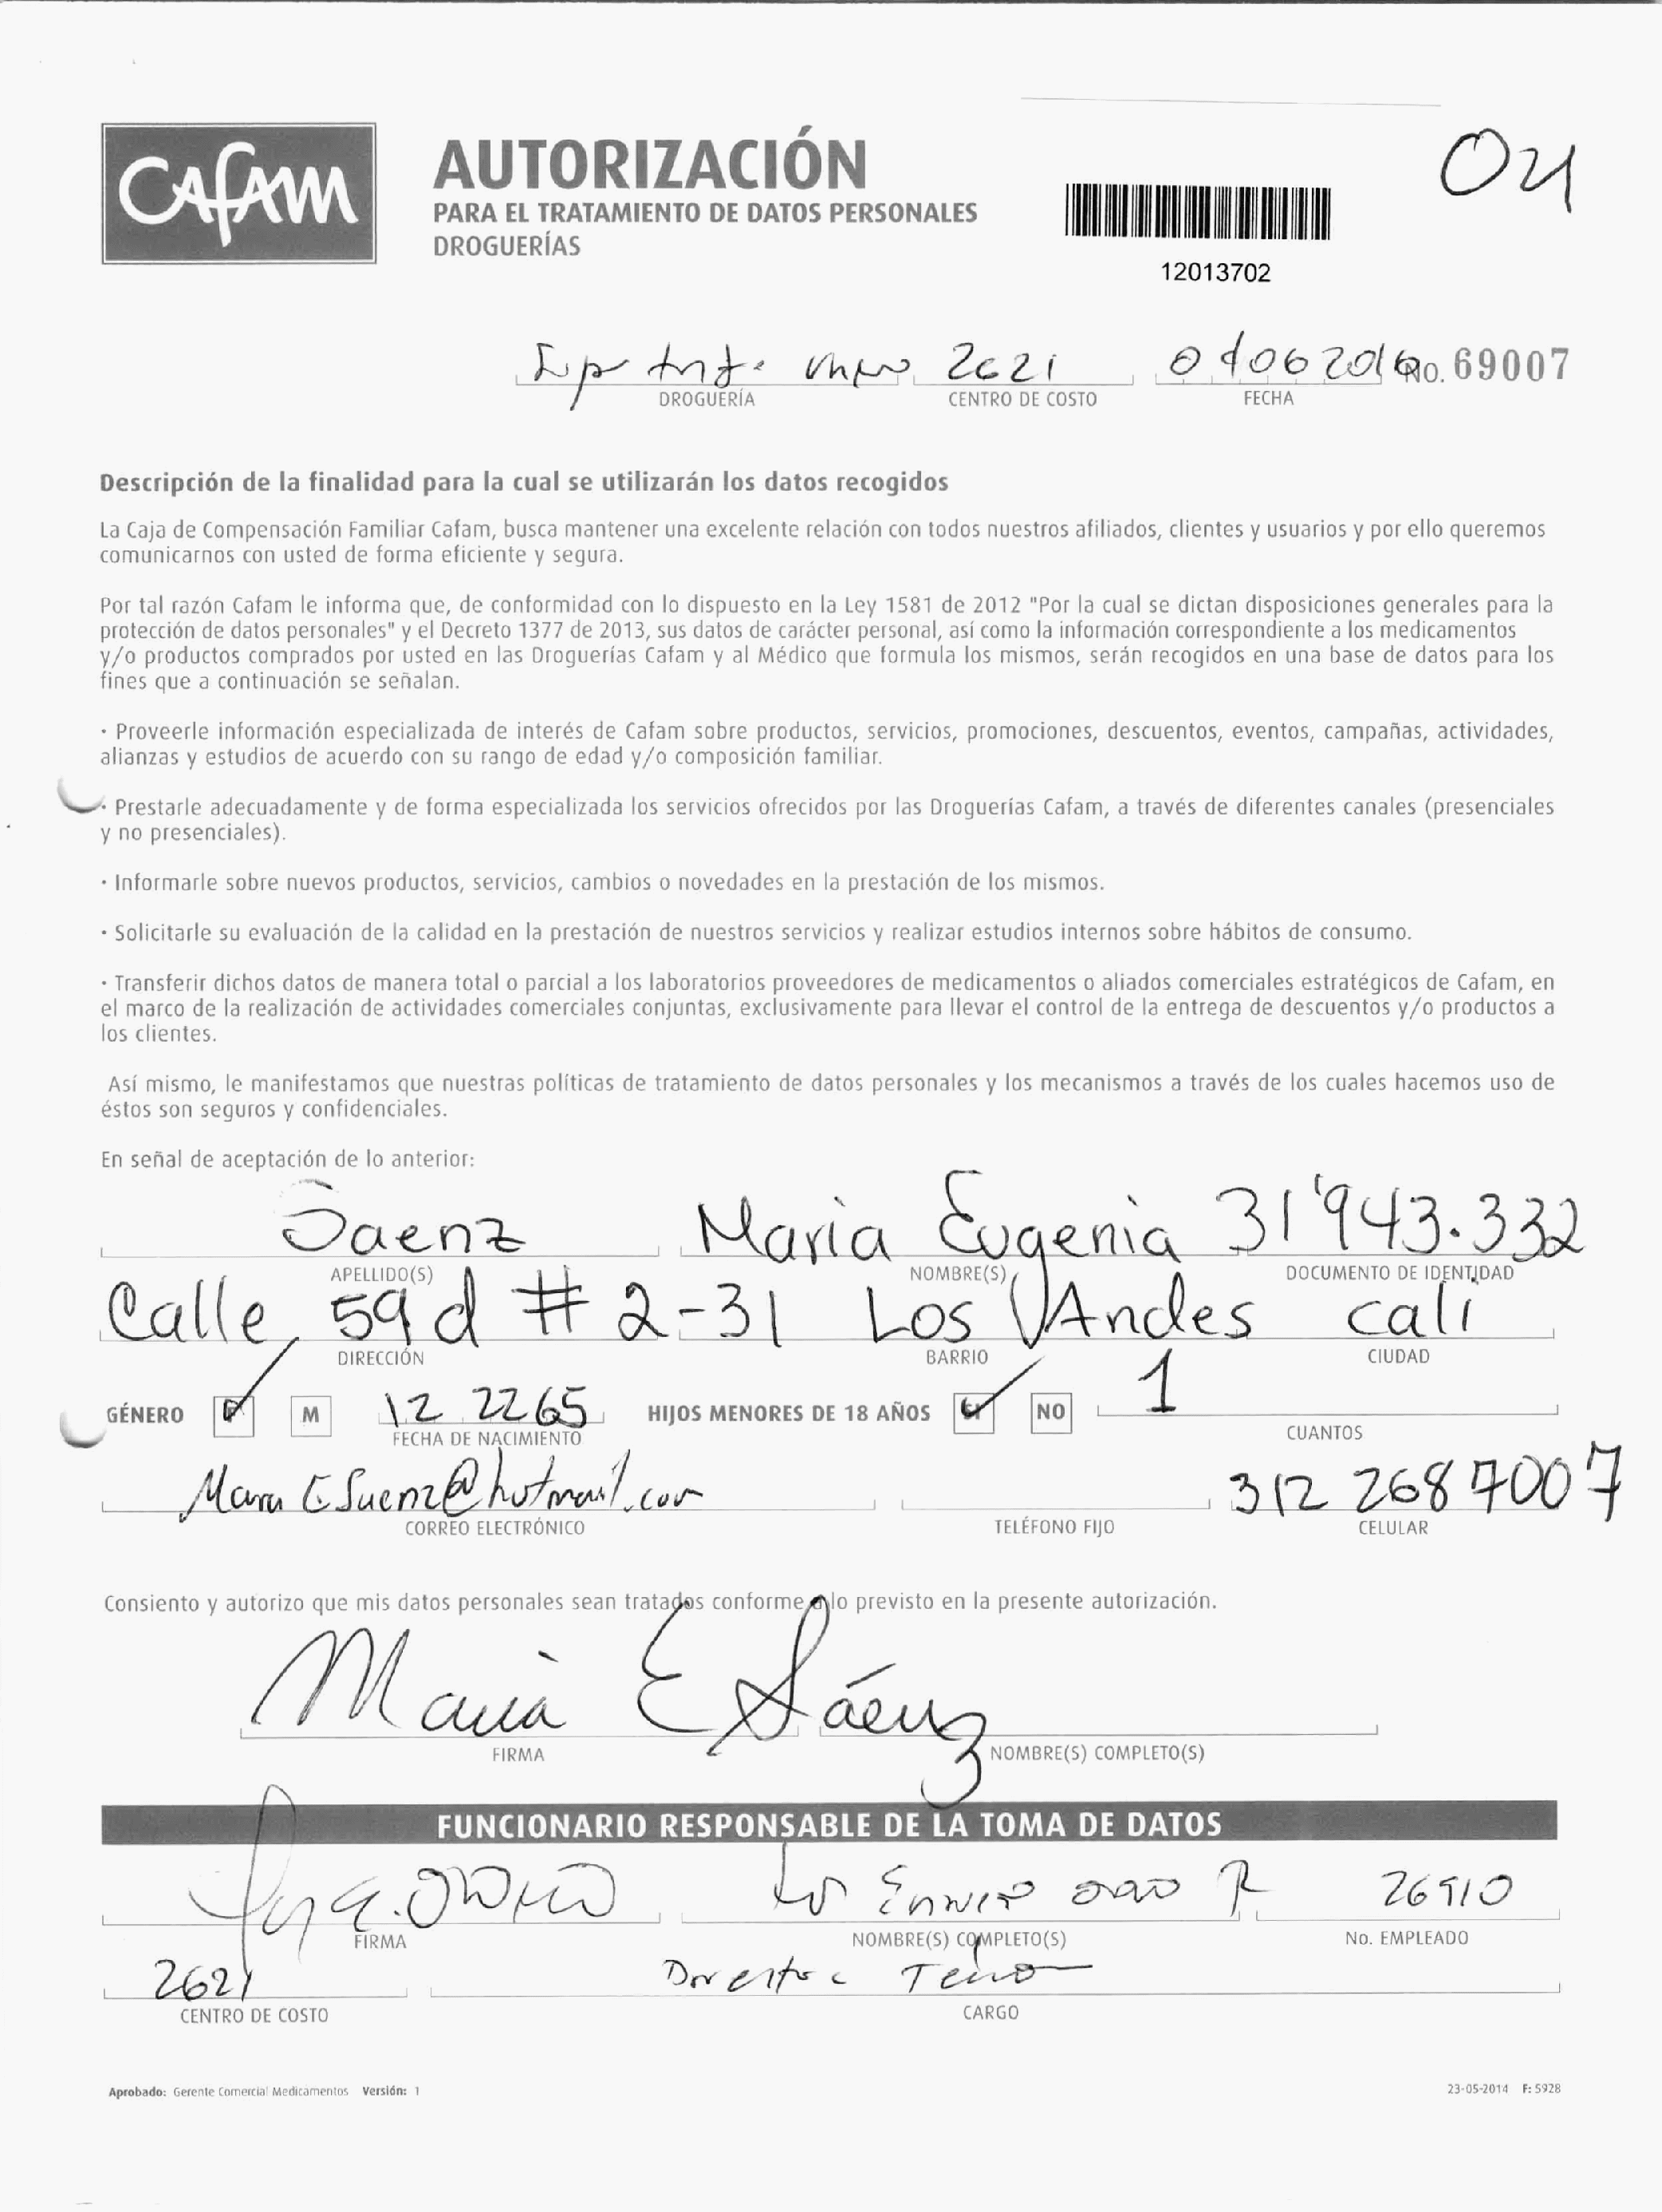 04
Cafam
AUTORIZACIÓN
PARA EL TRATAMIENTO DE DATOS PERSONALES
DROGUERÍAS
12013702
2621
No. 69007
DROGUERÍA CENTRO DE COSTO FECHA
Descripción de la finalidad para la cual se utilizarán los datos recogidos
La Caja de Compensación Familiar Cafam, busca mantener una excelente relación con todos nuestros afiliados, clientes y usuarios y por ello queremos
comunicarnos con usted de forma eficiente y segura.
Por tal razón Cafam le informa que, de conformidad con lo dispuesto en la Ley 1581 de 2012 "Por la cual se dictan disposiciones generales para la
protección de datos personales" y el Decreto 1377 de 2013, sus datos de carácter personal, así como la información correspondiente a los medicamentos
y/o productos comprados por usted en las Droguerías Cafam y al Médico que formula los mismos, serán recogidos en una base de datos para los
fines que a continuación se señalan.
· Proveerle información especializada de interés de Cafam sobre productos, servicios, promociones, descuentos, eventos, campañas, actividades,
alianzas y estudios de acuerdo con su rango de edad y/o composición familiar.
· Prestarle adecuadamente y de forma especializada los servicios ofrecidos por las Droguerías Cafam, a través de diferentes canales (presenciales
y no presenciales).
· Informarle sobre nuevos productos, servicios, cambios o novedades en la prestación de los mismos.
· Solicitarle su evaluación de la calidad en la prestación de nuestros servicios y realizar estudios internos sobre hábitos de consumo.
· Transferir dichos datos de manera total o parcial a los laboratorios proveedores de medicamentos o aliados comerciales estratégicos de Cafam, en
el marco de la realización de actividades comerciales conjuntas, exclusivamente para llevar el control de la entrega de descuentos y/o productos a
los clientes.
Así mismo, le manifestamos que nuestras políticas de tratamiento de datos personales y los mecanismos a través de los cuales hacemos uso de
éstos son seguros y confidenciales.
En señal de aceptación de lo anterior:
Saenz Maria Eugenia 31'943.332
APELLIDO(S) NOMBRE(S) DOCUMENTO DE IDENTIDAD
Calle 59d # 2-31 Los Andes cali
DIRECCIÓN BARRIO CIUDAD
GÉNERO F M 12 2265 HIJOS MENORES DE 18 AÑOS SI NO 1
FECHA DE NACIMIENTO CUANTOS
312 268 7007
CORREO ELECTRÓNICO TELÉFONO FIJO CELULAR
Consiento y autorizo que mis datos personales sean tratados conforme a lo previsto en la presente autorización.
Maria E Sáenz
FIRMA NOMBRE(S) COMPLETO(S)
FUNCIONARIO RESPONSABLE DE LA TOMA DE DATOS
26910
FIRMA NOMBRE(S) COMPLETO(S) No. EMPLEADO
2621
CENTRO DE COSTO CARGO
Aprobado: Gerente Comercial Medicamentos Versión: 1 23-05-2014 F: 5928